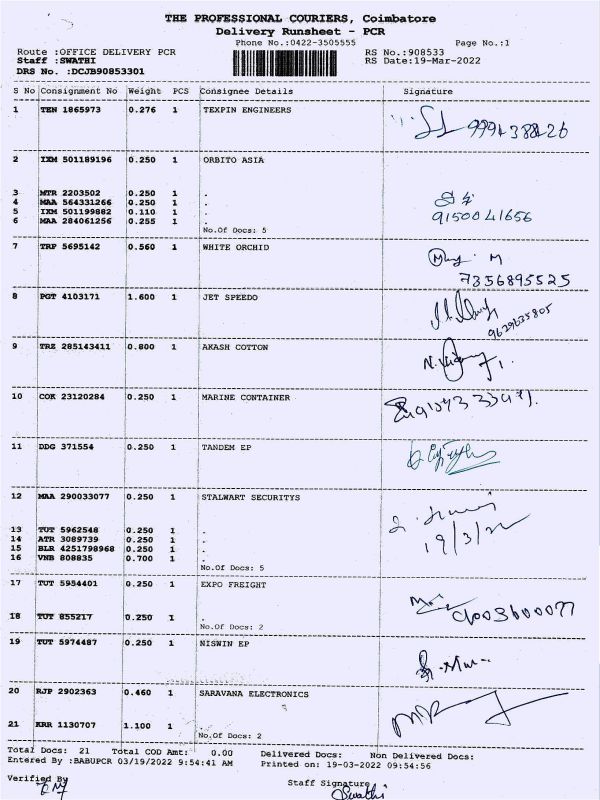 THE PROFESSIONAL COURIERS, Coimbatore
Delivery Runsheet - PCR
Phone No.:0422-3505555 Page No.:1
Route :OFFICE DELIVERY PCR RS No.:908533
Staff :SWATHI RS Date:19-Mar-2022
DRS No. :DCJB90853301
S No Consignment No Weight PCS Consignee Details Signature
1 TEN 1865973 0.276 1 TEXPIN ENGINEERS
2 IXM 501189196 0.250 1 ORBITO ASIA
3 MTR 2203502 0.250 1 .
4 MAA 564331266 0.250 1 .
5 IXM 501199882 0.110 1 .
6 MAA 284061256 0.255 1 .
9150041656
No.Of Docs: 5
7 TRP 5695142 0.560 1 WHITE ORCHID
7356895525
8 PGT 4103171 1.600 1 JET SPEEDO
9629635805
9 TRZ 285143411 0.800 1 AKASH COTTON
10 COK 23120284 0.250 1 MARINE CONTAINER
11 DDG 371554 0.250 1 TANDEM EP
12 MAA 290033077 0.250 1 STALWART SECURITYS
13 TUT 5962548 0.250 1 .
14 ATR 3089739 0.250 1 .
15 BLR 4251798968 0.250 1 .
16 VNB 808835 0.700 1 .
19/3/22
No.Of Docs: 5
17 TUT 5954401 0.250 1 EXPO FREIGHT
18 TUT 855217 0.250 1 .
No.Of Docs: 2
19 TUT 5974487 0.250 1 NISWIN EP
20 RJP 2902363 0.460 1 SARAVANA ELECTRONICS
21 KRR 1130707 1.100 1 .
No.Of Docs: 2
Total Docs: 21 Total COD Amt: 0.00 Delivered Docs: Non Delivered Docs:
Entered By :BABUPCR 03/19/2022 9:54:41 AM Printed on: 19-03-2022 09:54:56
Verified By Staff Signature
Swathi